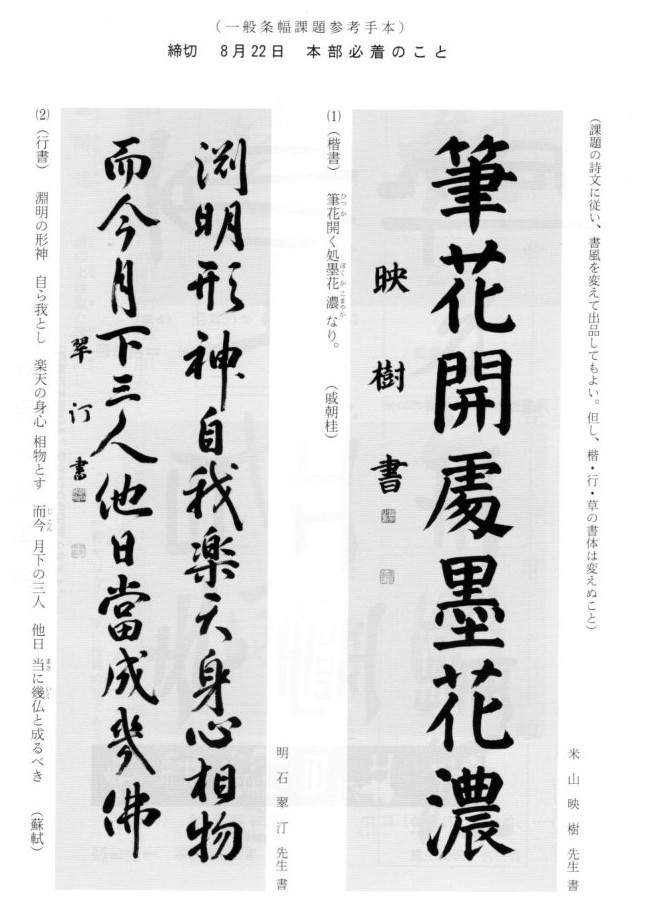 (一般条幅課題参考手本)
締切 8月22日 本部必着のこと
(課題の詩文に従い、書風を変えて出品してもよい。但し、楷・行・草の書体は変えぬこと)
米山映樹先生書
筆花開處墨花濃
映樹書
(1) (楷書) 筆花開く処墨花濃なり。 (戚朝桂)
ひつか ぼくか こまやか
明石翠汀先生書
淵明形神自我楽天身心相物
而今月下三人他日當成幾佛
翠汀書
(2) (行書) 淵明の形神 自ら我とし 楽天の身心 相物とす 而今月下の三人 他日 当に幾仏と成るべき (蘇軾)
じこん まさ いく